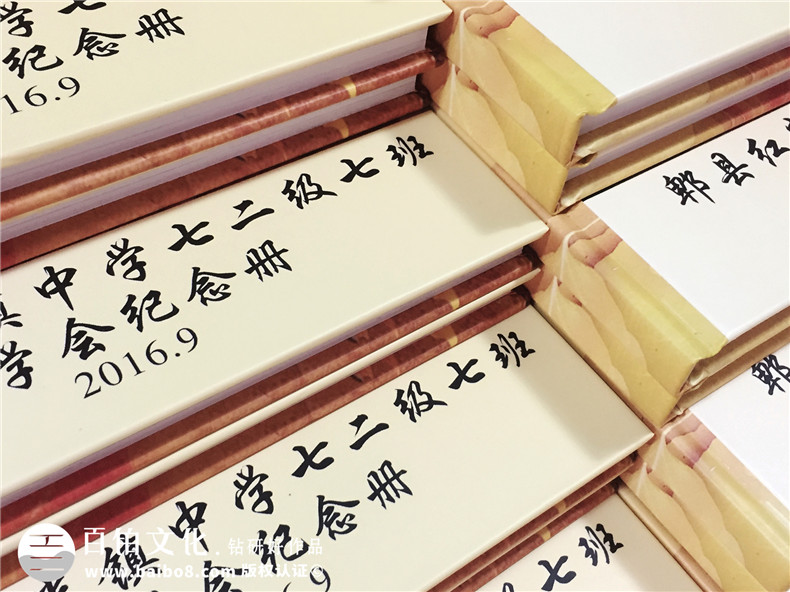 学七
纪念册
2016.9
中学七二级七班
学会纪念册
2016.9
镇中学七二级七班
会纪念册
.9
七班
郫县红
郫
百铂文化 钻研好作品
www.baibo8.com 版权认证©